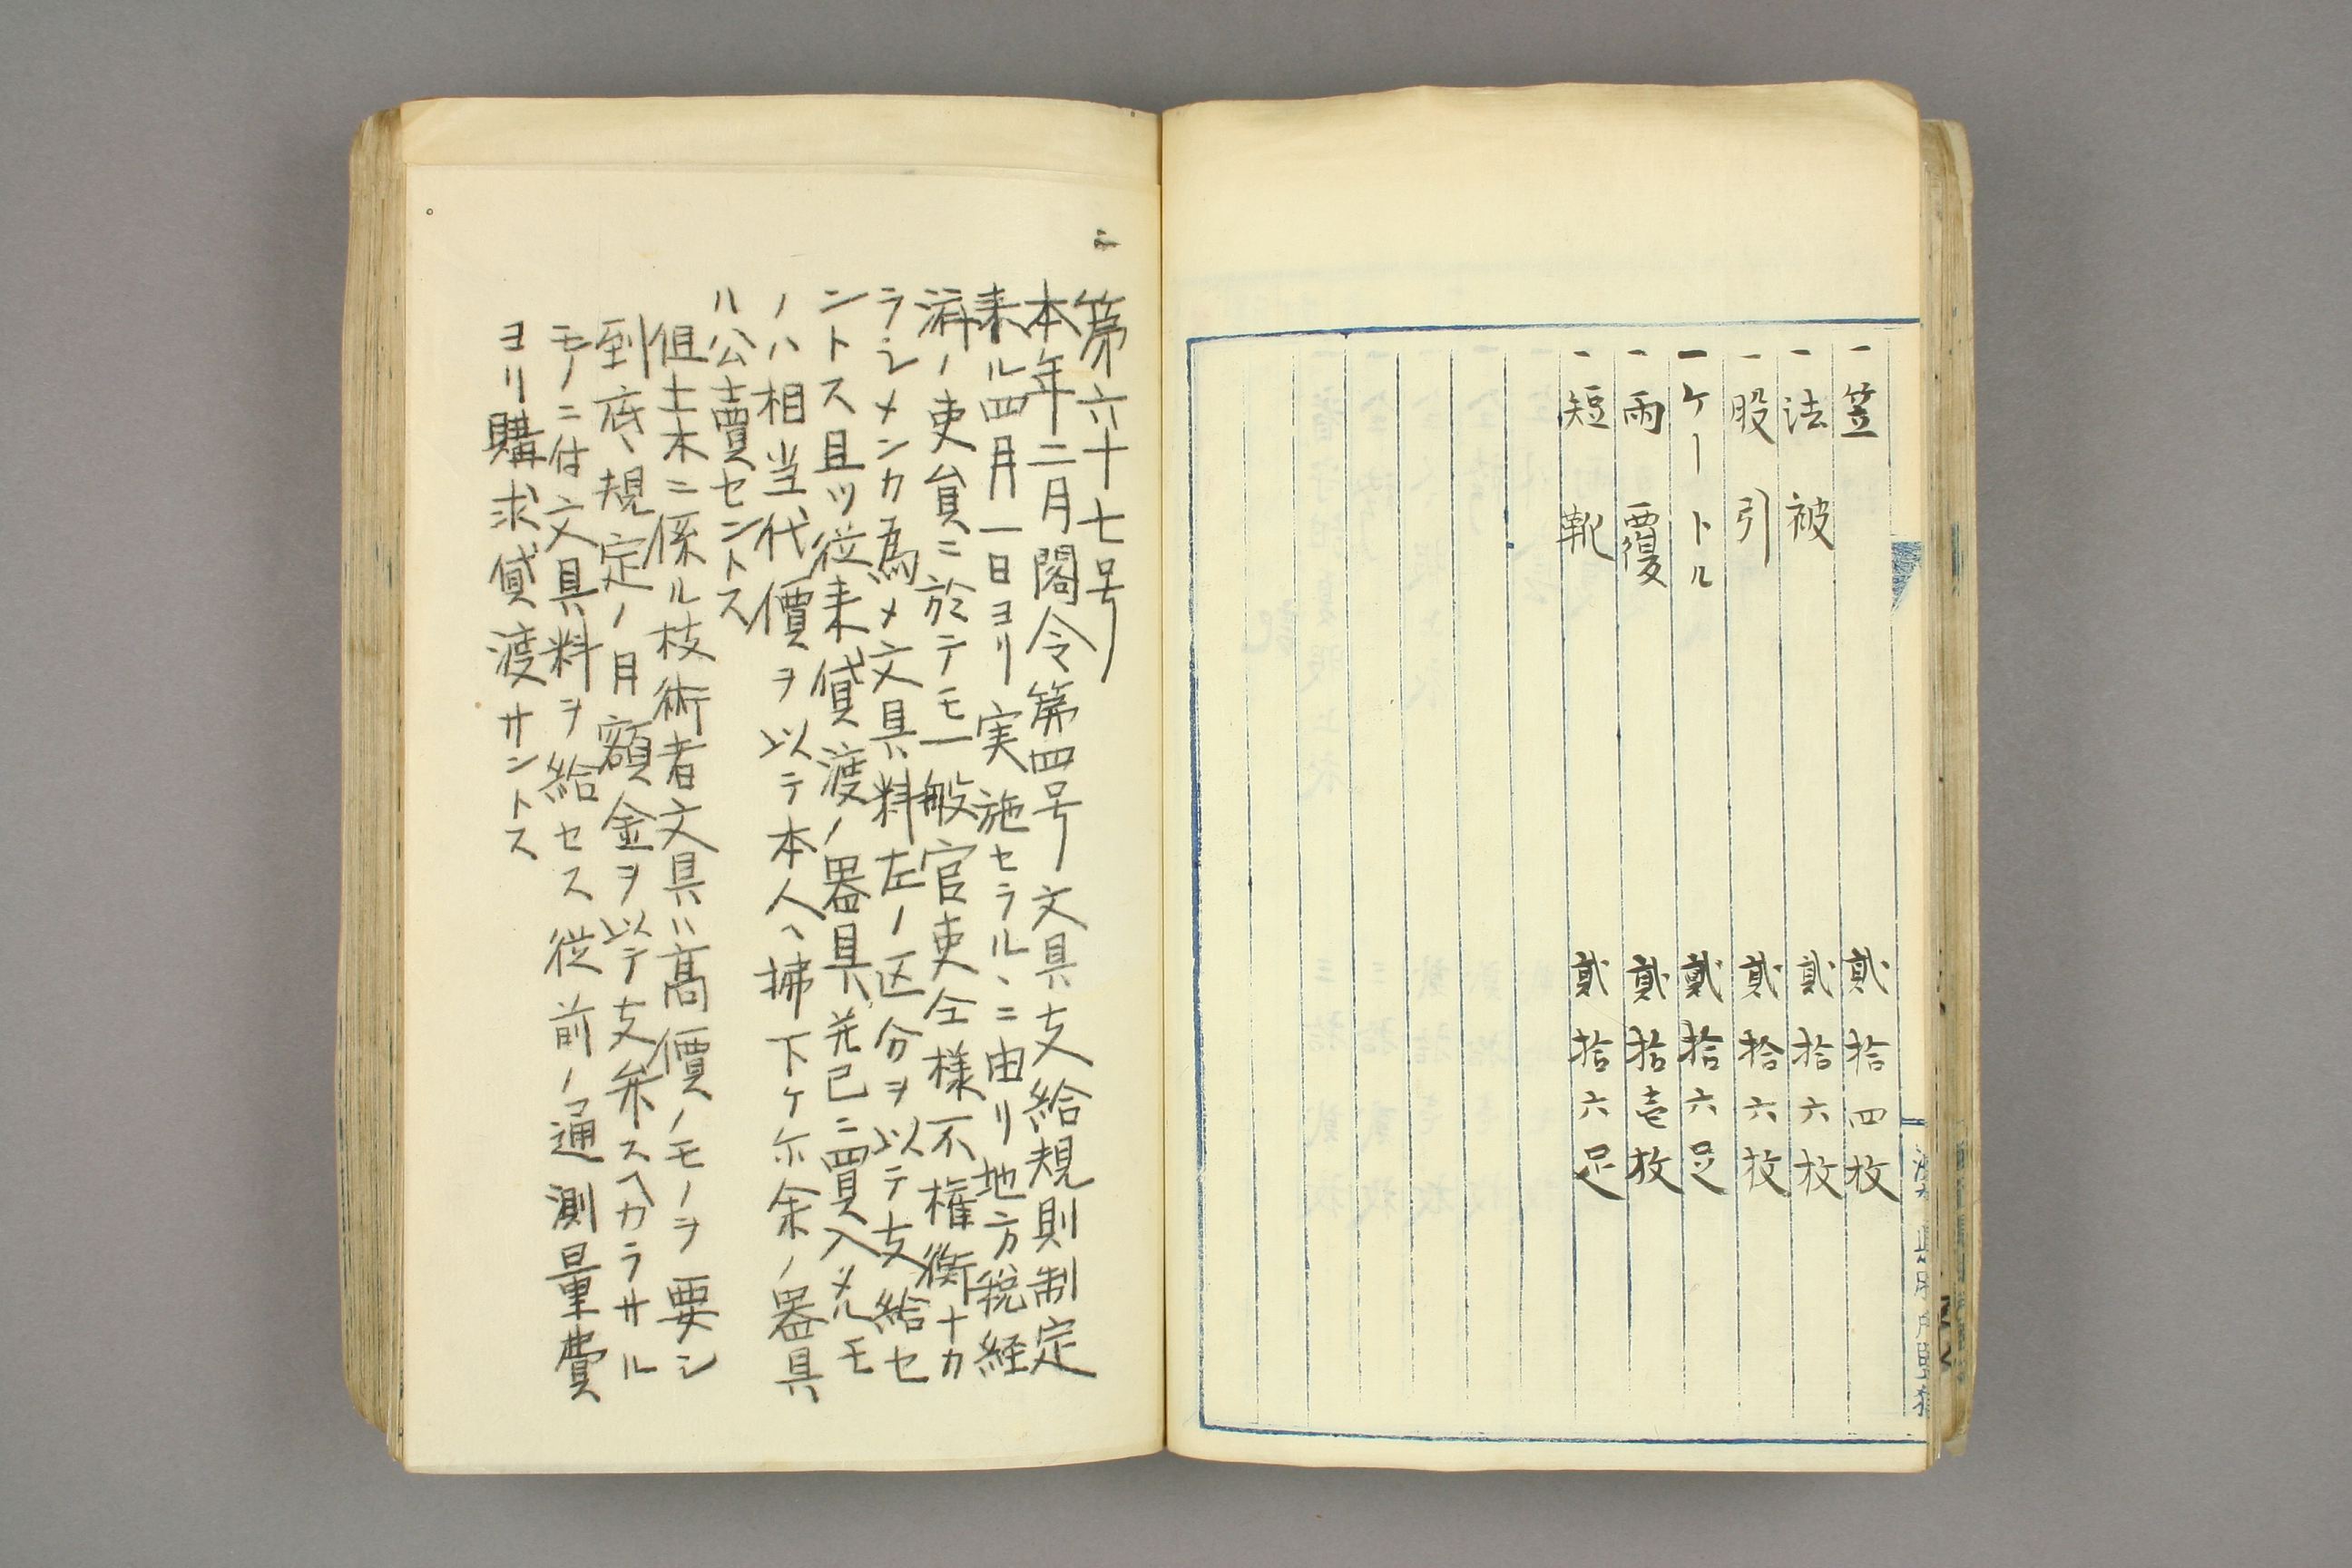 一笠 貳拾四枚
一法被 貳拾六枚
一股引 貳拾六枚
一ケートル 貳拾六足
一雨覆 貳拾壱枚
一短靴 貳拾六足
第六十七号
本年二月閣令第四号文具支給規則制定
来ル四月一日ヨリ実施セラルヽニ由リ地方税経
済ノ吏員ニ於テモ一般官吏仝様不権衡ナカ
ラシメンカ為メ文具料左ノ区分ヲ以テ支給セ
ントス且ツ従来貸渡ノ器具並已ニ買入メルモ
ノハ相当代價ヲ以テ本人ヘ拂下ケ尓余ノ器具
ハ公賣セントス
但土木ニ係ル技術者文具ハ高價ノモノヲ要シ
到底規定ノ月額金ヲ以テ支弁スヘカラサル
モノニ付文具料ヲ給セス従前ノ通測量費
ヨリ購求貸渡サントス